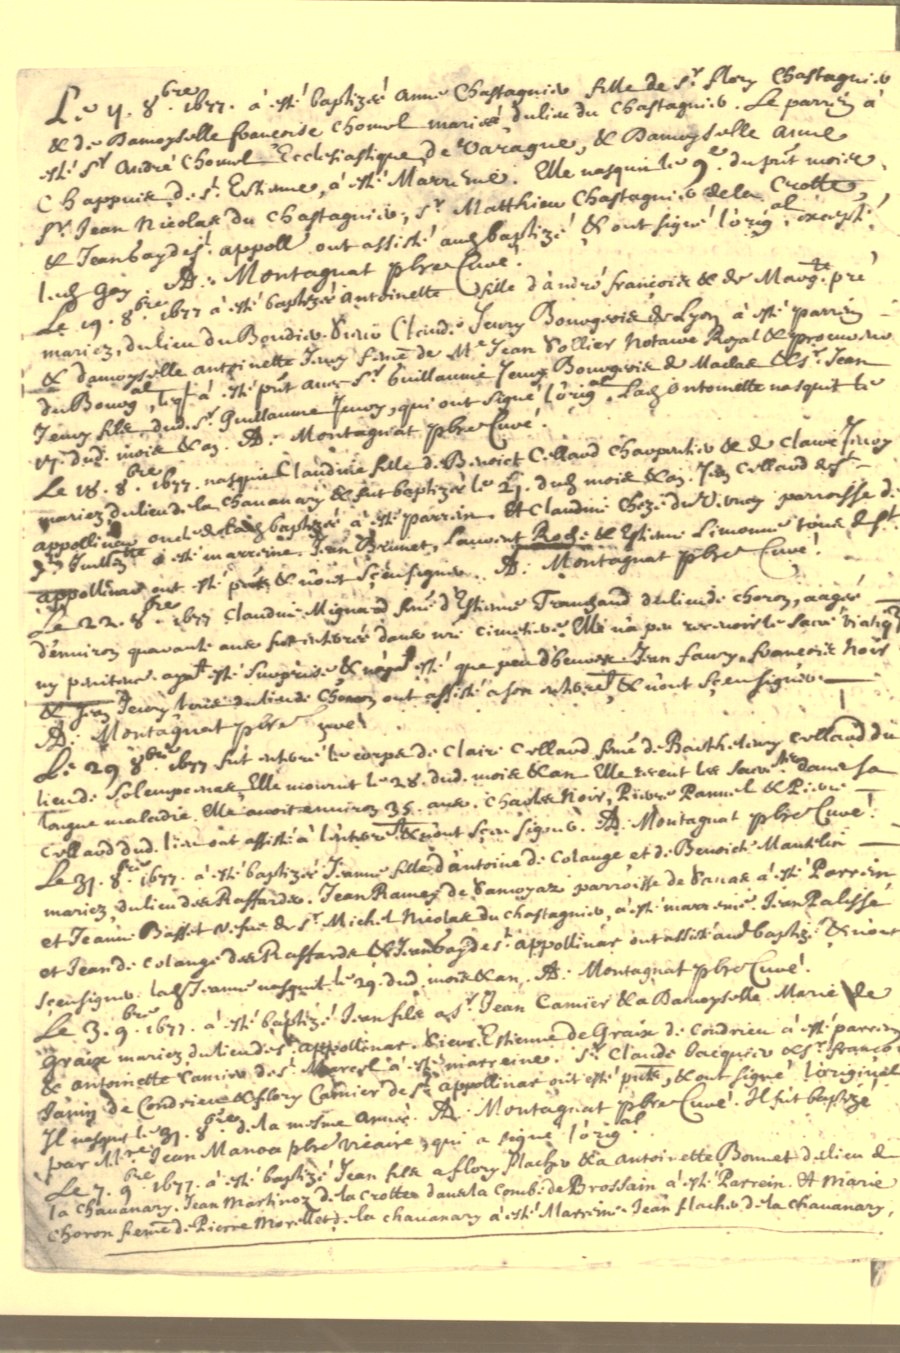 Le 11. 8bre. 1677. a esté baptizée Anne Chastagnier fille de Sr. flory Chastagnier
& de Damoyselle francoise Chomel mariés du lieu du Chastagnier. Le parrin à
esté Sr André Chomel Ecclesiastique, de Varagne, & Damoyselle anne
Chappuis de St. Estienne, à esté Marrine. Elle nasquit le 9e. du pñt mois.
Sr. Jean Nicolas du Chastagnier, Sr. Matthieu Chastagnier de la Crotte,
& Jean Gay de St. appoll. ont assisté aud baptizé & ont signé l'orig.al excepté
led Gay. A. Montagnat pbre Curé.
Le 19. 8bre. 1677 à esté baptizée antoinette fille d'andré françois & de Marg.te pré
mariez, du lieu du Sieur Claude Jeury Bourgeois de Lyon à esté parrin
& damoyselle antoinette Jeury feme de Me Jean Sollier Notaire Royal & procureur
du Bourg à esté pñt avec Sr. Guillaume Jeury Bourgeois de Maclas & Sr. Jean
Jeury fils dud. Sr. Guillaume Jeury, qui ont signé l'orig.al Lad Antoinette nasquit le
17. dud. mois & an. A. Montagnat pbre Curé.
Le 18. 8bre. 1677. nasquit Claudine fille de Benoict Cellard Charpentier & de Claire Jeury
mariez du lieu de la Chavanary & fut baptizée le 21. dud mois & an. Jean Cellard de St
appollinar oncle de lad baptizée à esté parrein. Et Claudine parroisse de
à esté marreine. Jean Brunet, Laurent Roche & Estienne Limonne tous de St.
appollinar ont esté pñts & n'ont sçeu signer. A. Montagnat pbre Curé.
Le 22. 8bre 1677 Claudine Mignard feme d'Estienne du lieu de Choron, aagée
d'environ quarante ans fut enterrée dans nre cimetiere. Elle n'a peu recevoir le sacré viatiq
ny penitence ayat esté surprise & n'ayat esté que peu d'heures Jean faury francois Noir
& Jean Jeury tous du lieu de Choron ont assisté a son enterret. & n'ont sçeu signer.
A. Montagnat pbre Curé
Le 29 8bre. 1677 fut enterré le corps de Claire Cellard feme de Barthelemy Cellard du
lieu de Solempernas, Elle mourut le 28. dud. mois & an Elle receut les sacre.ts dans sa
longue maladie. Elle avoit environ 35. ans. Charles Noir, Pierre & Pierre
Cellard dud. lieu ont assisté à l'enterret & n'ont sçeu signer. A. Montagnat pbre Curé.
Le 31. 8bre. 1677. à esté baptizée Jeanne fille d'antoine de Colange et de Benoicte
mariez, du lieu des Raffardes. Jean Ramey de Samoyaz parroisse de Sanas à esté Parrein
et Jeanne Basset vefve de Sr. Michel Nicolas du chastagnier, à esté marreine. Jean Palissé
et Jean de Colange des Raffards & Jean Gay de St. appollinar ont assisté aud baptizé & n'ont
sçeu signer. lad Jeanne nasquit le 29. dud. mois & an. A. Montagnat pbre Curé.
Le 3. 9bre. 1677. à esté baptizé Jean fils a Sr. Jean Camier & a Damoyselle Marie de
Graix mariez du lieu de St. appollinar. Sieur Estienne de Graix de Condrieu à esté parrein
& antoinette Camier de St. Marcel à esté marreine. Sr. Claude Jacquier & Sr. françois
Jamin de Condrieu & flory Camier de St. appollinar ont esté pñts, & ont signé l'original
Il nasquit le 31. 8bre. de la mesme année. A. Montagnat pbre Curé. Il fut baptizé
par Mre. Jean Manoa pbre vicaire, qui a signé l'orig.al
Le 7. 9bre. 1677. à esté baptizé Jean fils a flory flacher & a antoinette Bonnet du lieu de
la Chavanary. Jean Martinoz de la Crottes dans la Combe de Brossain à esté Parrein. Et Marie
Choron femme de Pierre Morellet de la chavanary à esté Marreine. Jean flacher de la chavanary,